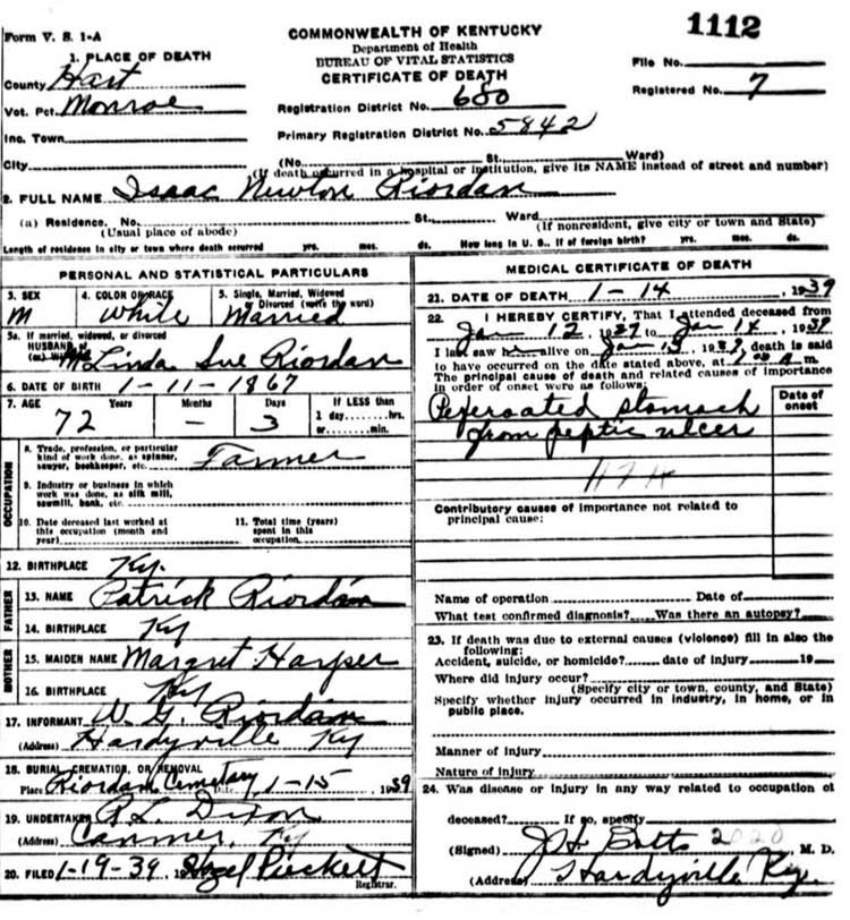 1112
Form V. S. 1-A
COMMONWEALTH OF KENTUCKY
Department of Health
BUREAU OF VITAL STATISTICS
CERTIFICATE OF DEATH
File No.
Registered No. 7
1. PLACE OF DEATH
County Hart
Vot. Pct. Monroe
Inc. Town
City
Registration District No. 680
Primary Registration District No. 5842
(No. St. Ward)
(If death occurred in a hospital or institution, give its NAME instead of street and number)
2. FULL NAME Isaac Newton Riordan
(a) Residence. No. St. Ward
(Usual place of abode) (If nonresident, give city or town and State)
Length of residence in city or town where death occurred yrs. mos. ds. How long in U. S., if of foreign birth? yrs. mos. ds.
PERSONAL AND STATISTICAL PARTICULARS
3. SEX 4. COLOR OR RACE 5. Single, Married, Widowed
or Divorced (write the word)
M White Married
5a. If married, widowed, or divorced
HUSBAND of
Linda Sue Riordan
6. DATE OF BIRTH 1-11-1867
7. AGE Years Months Days If LESS than
1 day........hrs.
or........min.
72 - 3
OCCUPATION
8. Trade, profession, or particular
kind of work done, as spinner,
sawyer, bookkeeper, etc. Farmer
9. Industry or business in which
work was done, as silk mill,
sawmill, bank, etc.
10. Date deceased last worked at
this occupation (month and
year)
11. Total time (years)
spent in this
occupation
12. BIRTHPLACE Ky.
FATHER
13. NAME Patrick Riordan
14. BIRTHPLACE Ky
MOTHER
15. MAIDEN NAME Margret Harper
16. BIRTHPLACE Ky
17. INFORMANT W. G. Riordan
(Address) Hardyville Ky
18. BURIAL, CREMATION, OR REMOVAL
Place Riordan Cemetary Date 1-15 1939
19. UNDERTAKER R. L. Dixon
(Address) Canmer, Ky
20. FILED 1-19-39, 19 Hazel Puckett
Registrar.
MEDICAL CERTIFICATE OF DEATH
21. DATE OF DEATH 1-14, 1939
22. I HEREBY CERTIFY, That I attended deceased from
Jan 12, 1939 to Jan 14, 1939
I last saw alive on Jan 13, 1939, death is said
to have occurred on the date stated above, at m.
The principal cause of death and related causes of importance
in order of onset were as follows:
Date of
onset
Peferoated stomach
from peptic ulcer
Contributory causes of importance not related to
principal cause:
Name of operation Date of
What test confirmed diagnosis? Was there an autopsy?
23. If death was due to external causes (violence) fill in also the
following:
Accident, suicide, or homicide? date of injury 19
Where did injury occur?
(Specify city or town, county, and State)
Specify whether injury occurred in industry, in home, or in
public place.
Manner of injury
Nature of injury
24. Was disease or injury in any way related to occupation of
deceased? If so, specify
(Signed) J H Botts M. D.
(Address) Hardyville Ky.